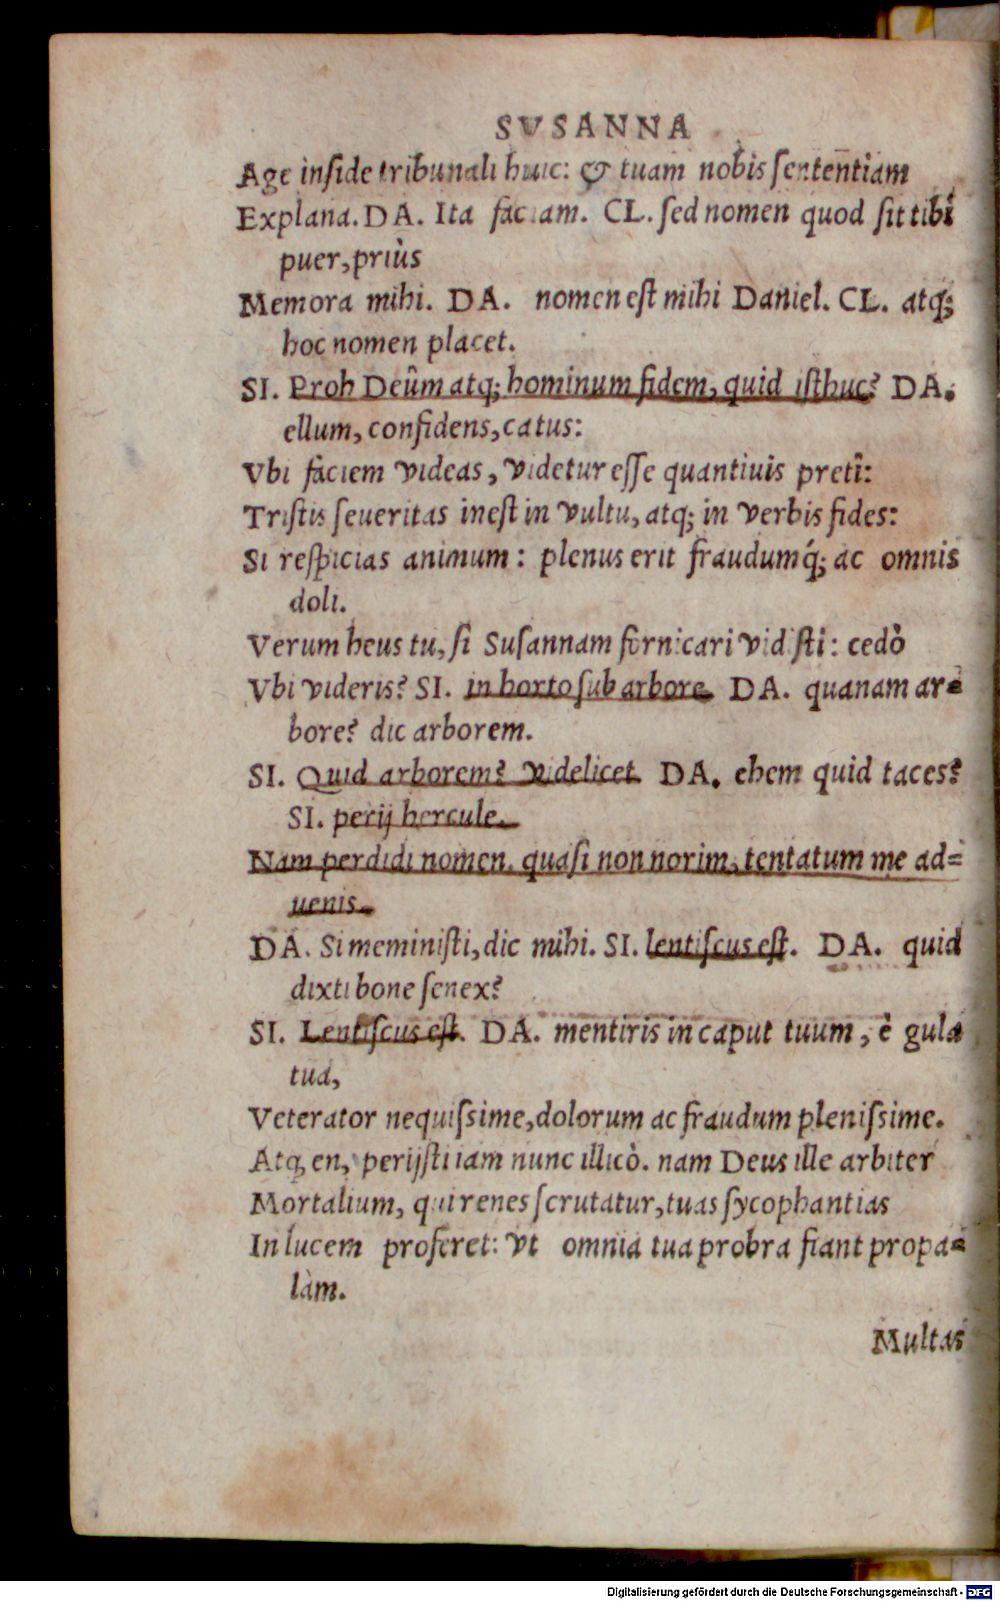 SVSANNA
Age inſide tribunali huic: & tuam nobis ſententiam
Explana. DA. Ita faciam. CL. ſed nomen quod ſit tibi
puer, priùs
Memora mihi. DA. nomen eſt mihi Daniel. CL. atq;
hoc nomen placet.
SI. Proh Deûm atq; hominum fidem, quid iſthuc? DA.
ellum, confidens, catus:
Vbi faciem videas, videtur eſſe quantiuis pretî:
Triſtis ſeueritas ineſt in vultu, atq; in verbis fides:
Si reſpicias animum: plenus erit fraudumq́; ac omnis
doli.
Verum heus tu, ſi Suſannam fornicari vidiſti: cedò
Vbi videris? SI. in horto ſub arbore. DA. quanam ar=
bore? dic arborem.
SI. Quid arborem? videlicet. DA. ehem quid taces?
SI. perij hercule.
Nam perdidi nomen. quaſi non norim, tentatum me ad=
uenis.
DA. Si meminiſti, dic mihi. SI. lentiſcus eſt. DA. quid
dixti bone ſenex?
SI. Lentiſcus eſt. DA. mentiris in caput tuum, è gula
tua,
Veterator nequiſsime, dolorum ac fraudum pleniſsime.
Atq, en, perijſti iam nunc illicò. nam Deus ille arbiter
Mortalium, qui renes ſcrutatur, tuas ſycophantias
In lucem proferet: vt omnia tua probra fiant propa=
làm.
Multas
Digitalisierung gefördert durch die Deutsche Forschungsgemeinschaft - DFG